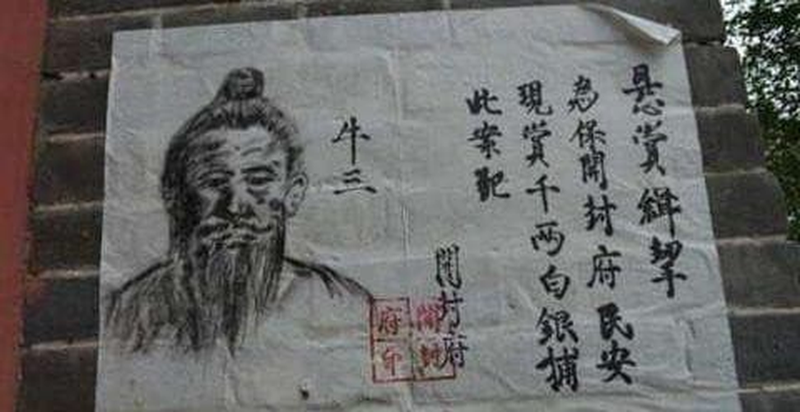 懸賞緝拏
為保開封府民安
現賞千両白銀捕
此案犯
開封府
牛三
開封
府印